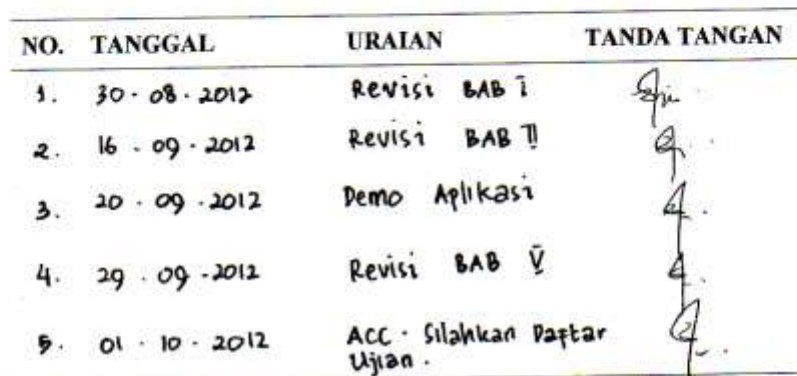 NO. TANGGAL URAIAN TANDA TANGAN
1. 30 - 08 - 2012 Revisi BAB I
2. 16 - 09 - 2012 Revisi BAB II
3. 20 - 09 - 2012 Demo Aplikasi
4. 29 - 09 - 2012 Revisi BAB V
5. 01 - 10 - 2012 ACC - Silahkan Daftar
Ujian.